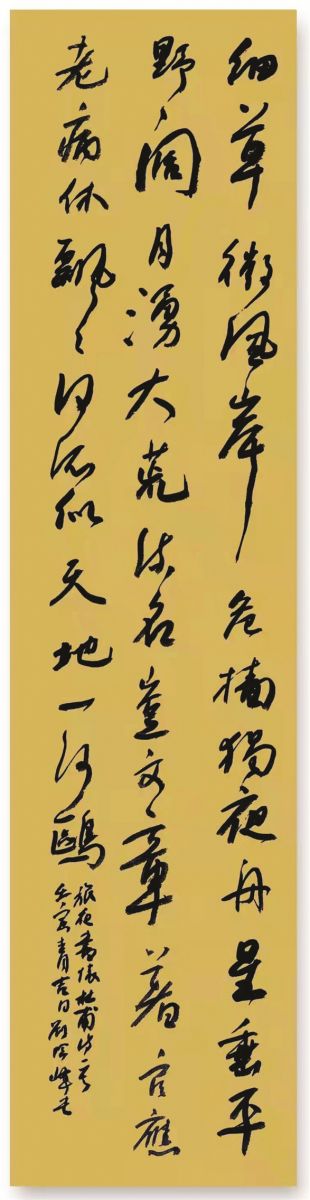 細草微風岸危檣獨夜舟星垂平
野闊月湧大荒流名豈文章著官應
老病休飄々何所似天地一沙鷗
旅夜書懷杜甫詩
寅青月吉日劉峰書